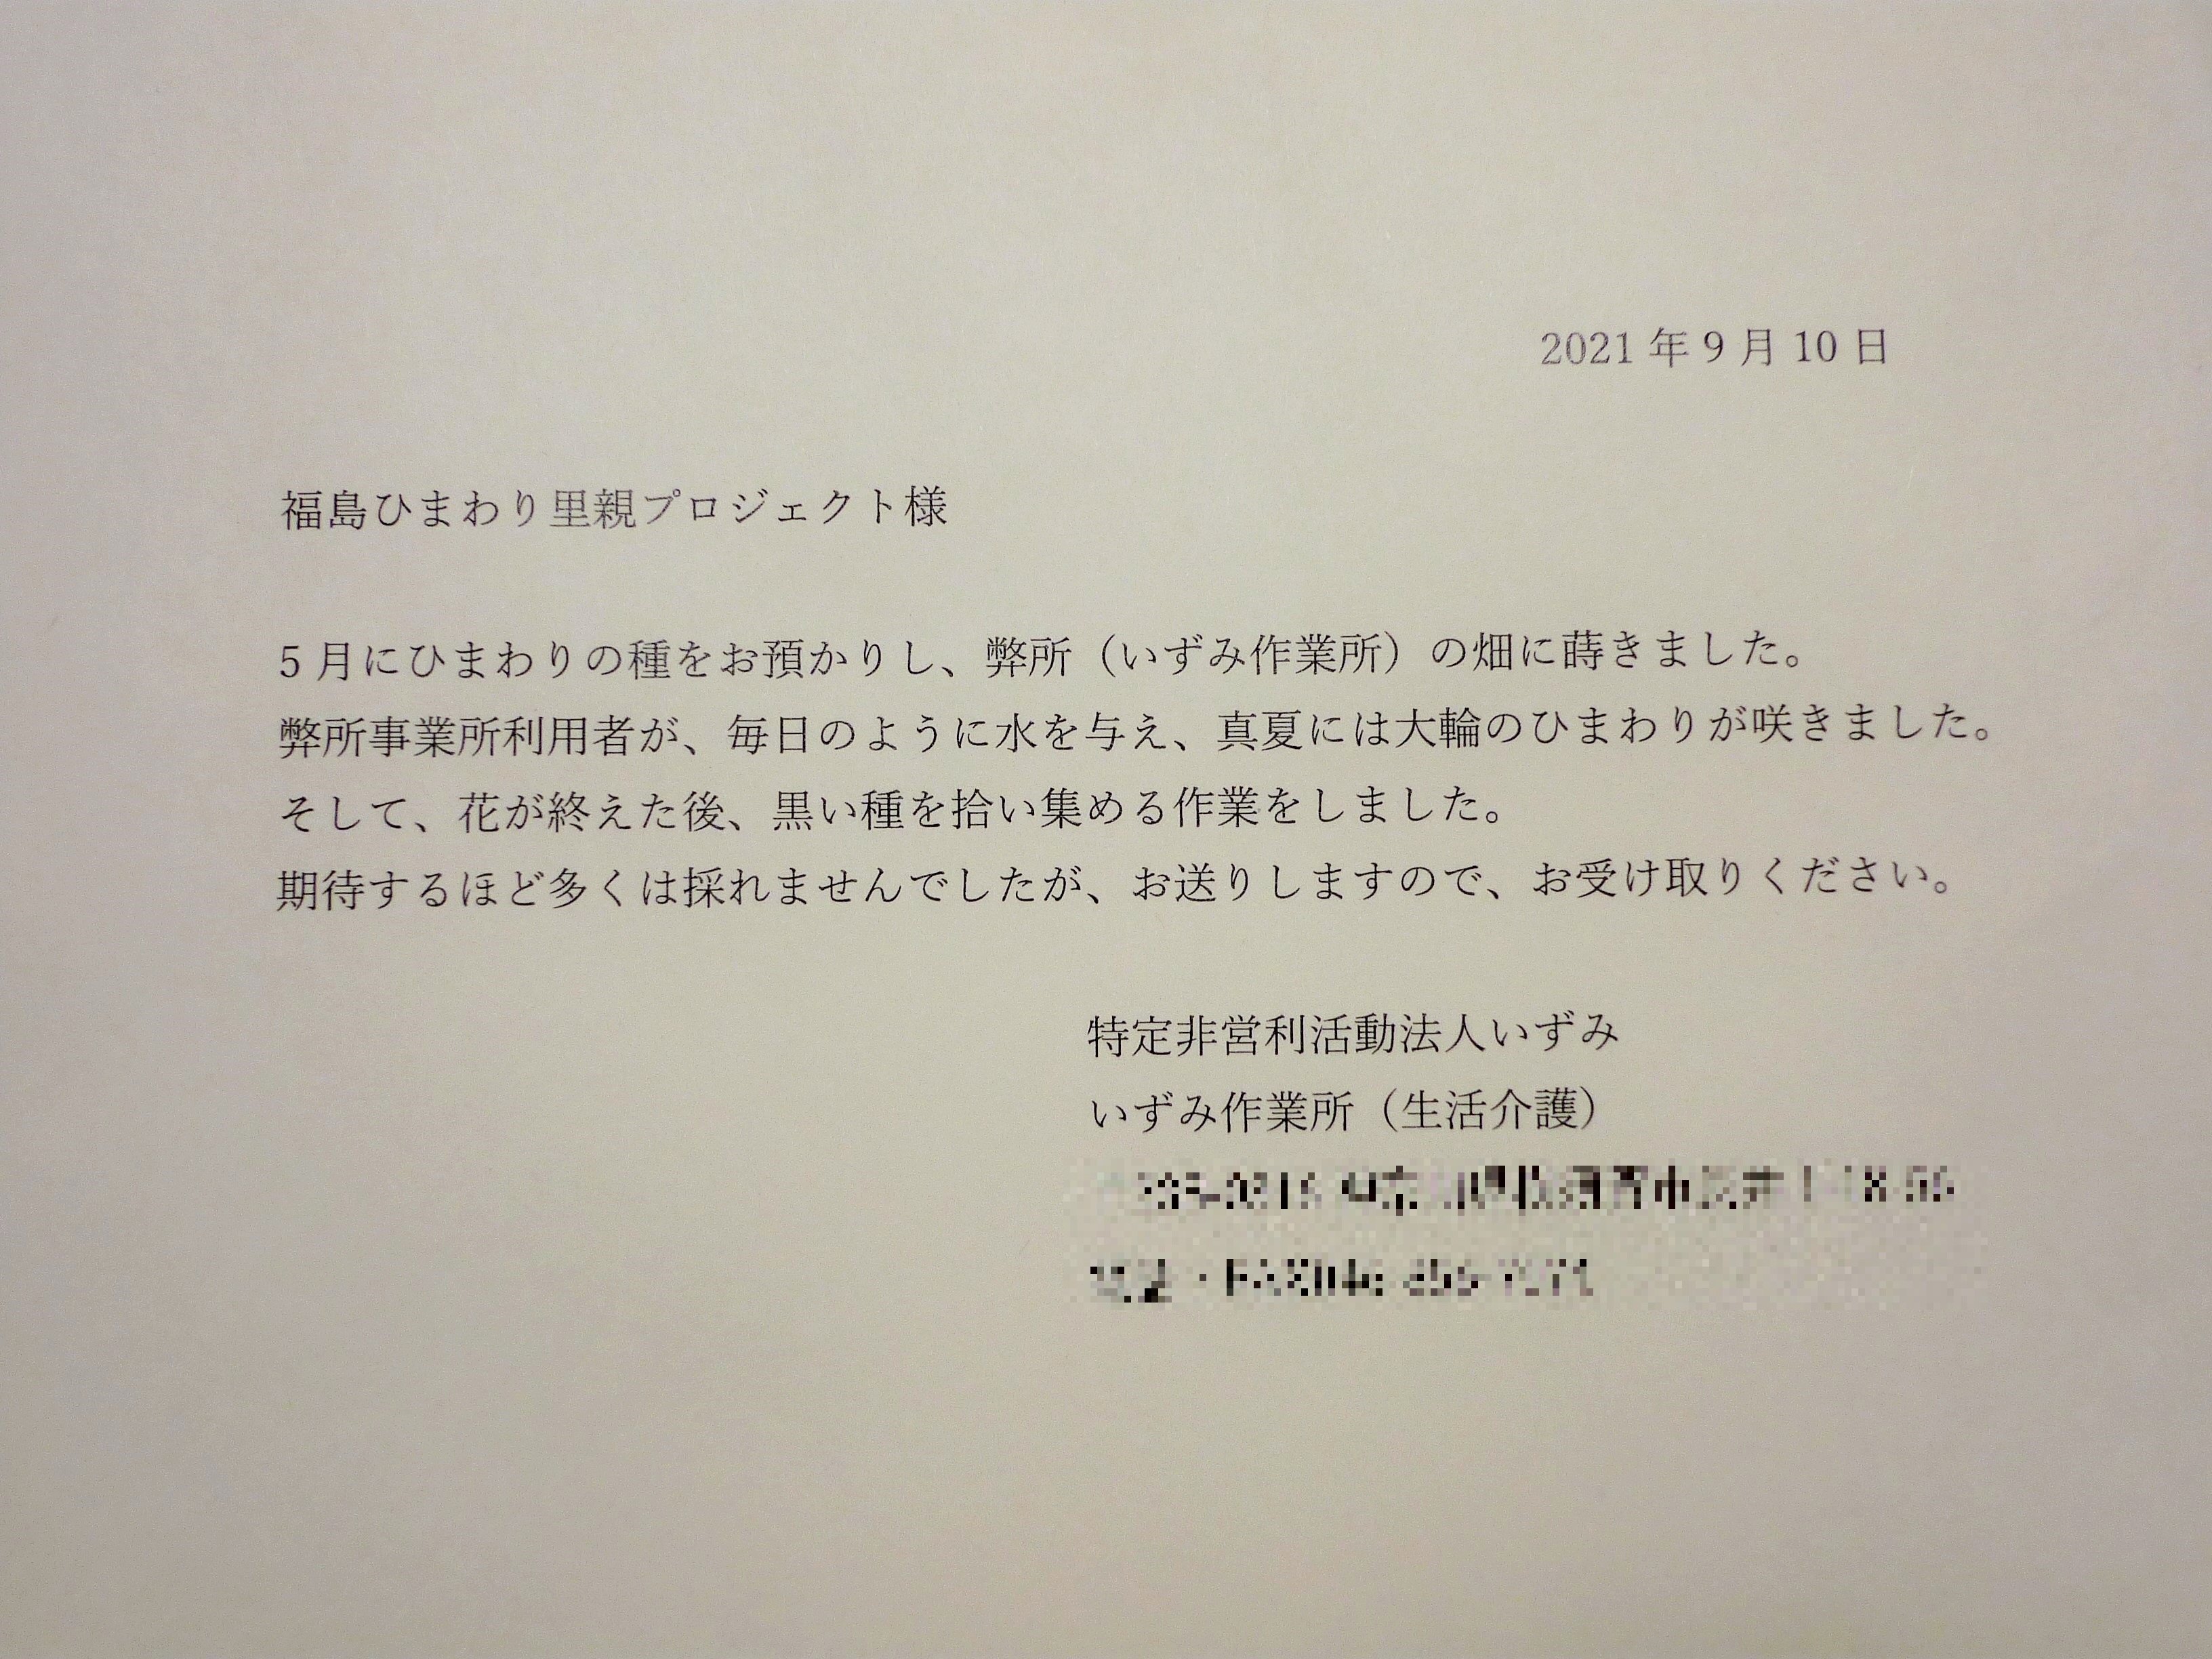 2021年9月10日
福島ひまわり里親プロジェクト様
5月にひまわりの種をお預かりし、弊所（いずみ作業所）の畑に蒔きました。
弊所事業所利用者が、毎日のように水を与え、真夏には大輪のひまわりが咲きました。
そして、花が終えた後、黒い種を拾い集める作業をしました。
期待するほど多くは採れませんでしたが、お送りしますので、お受け取りください。
特定非営利活動法人いずみ
いずみ作業所（生活介護）